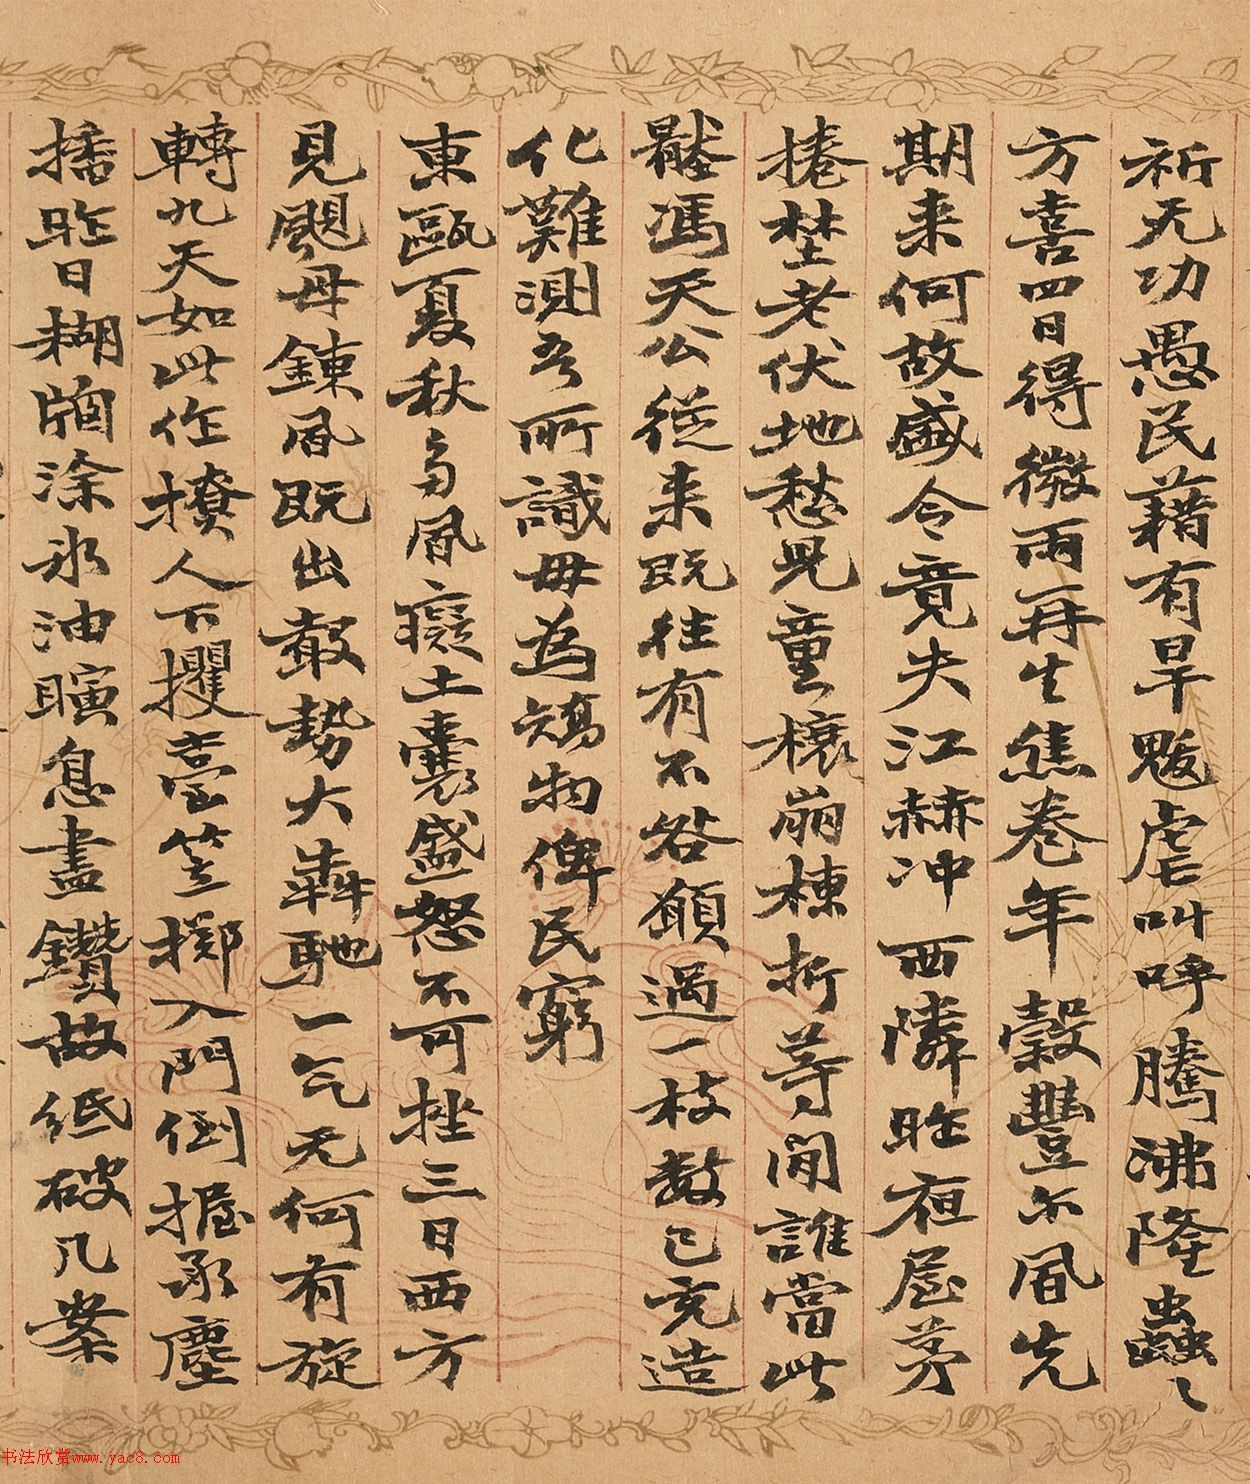 祈无功愚民藉有旱魃虐叫呼騰沸隆蟲〻
方喜四日得微雨再生焦卷年穀豐尓風先
期来何故盛令竟失江赫冲西隣昨夜屋茅
捲埜老伏地愁兒童榱崩棟折等閒誰當此
馮天公從来既往有不咎願過一枝數已充造
化難測吾所識毋為鴆物俾民窮
東甌夏秋多風癡土囊盛怒不可挫三日西方
見颶母鍊風既出㪍勢大犇馳一气无何有旋
轉九天如此作撩人下攫臺笠擲入門倒握承塵
播昨日糊牖涂氷油瞚息盡鑽故紙破几案
书法欣赏www.yac8.com